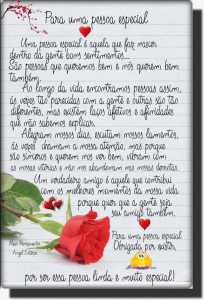 Para uma pessoa especial
Uma pessoa especial é aquela que faz nascer
dentro da gente bons sentimentos...
São pessoas que queremos bem e nós querem bem
também.
Ao longo da vida encontramos pessoas assim,
às vezes tão parecidas com a gente e outras são tão
diferentes, mas existem laços afetivos e afinidades
que não sabemos explicar.
Alegram nossos dias, escutam nossos lamentos,
às vezes chamam a nossa atenção, mas porque
são sinceros e querem nos ver bem, vibram com
as nossas vitórias e não nos abandonam nas nossas derrotas.
Um verdadeiro amigo é aquele que contribui
com os melhores momentos da nossa vida
porque quer que a gente seja
seu amigo também.
Para uma pessoa especial
Obrigada por existir,
por ser essa pessoa linda e muito especial!